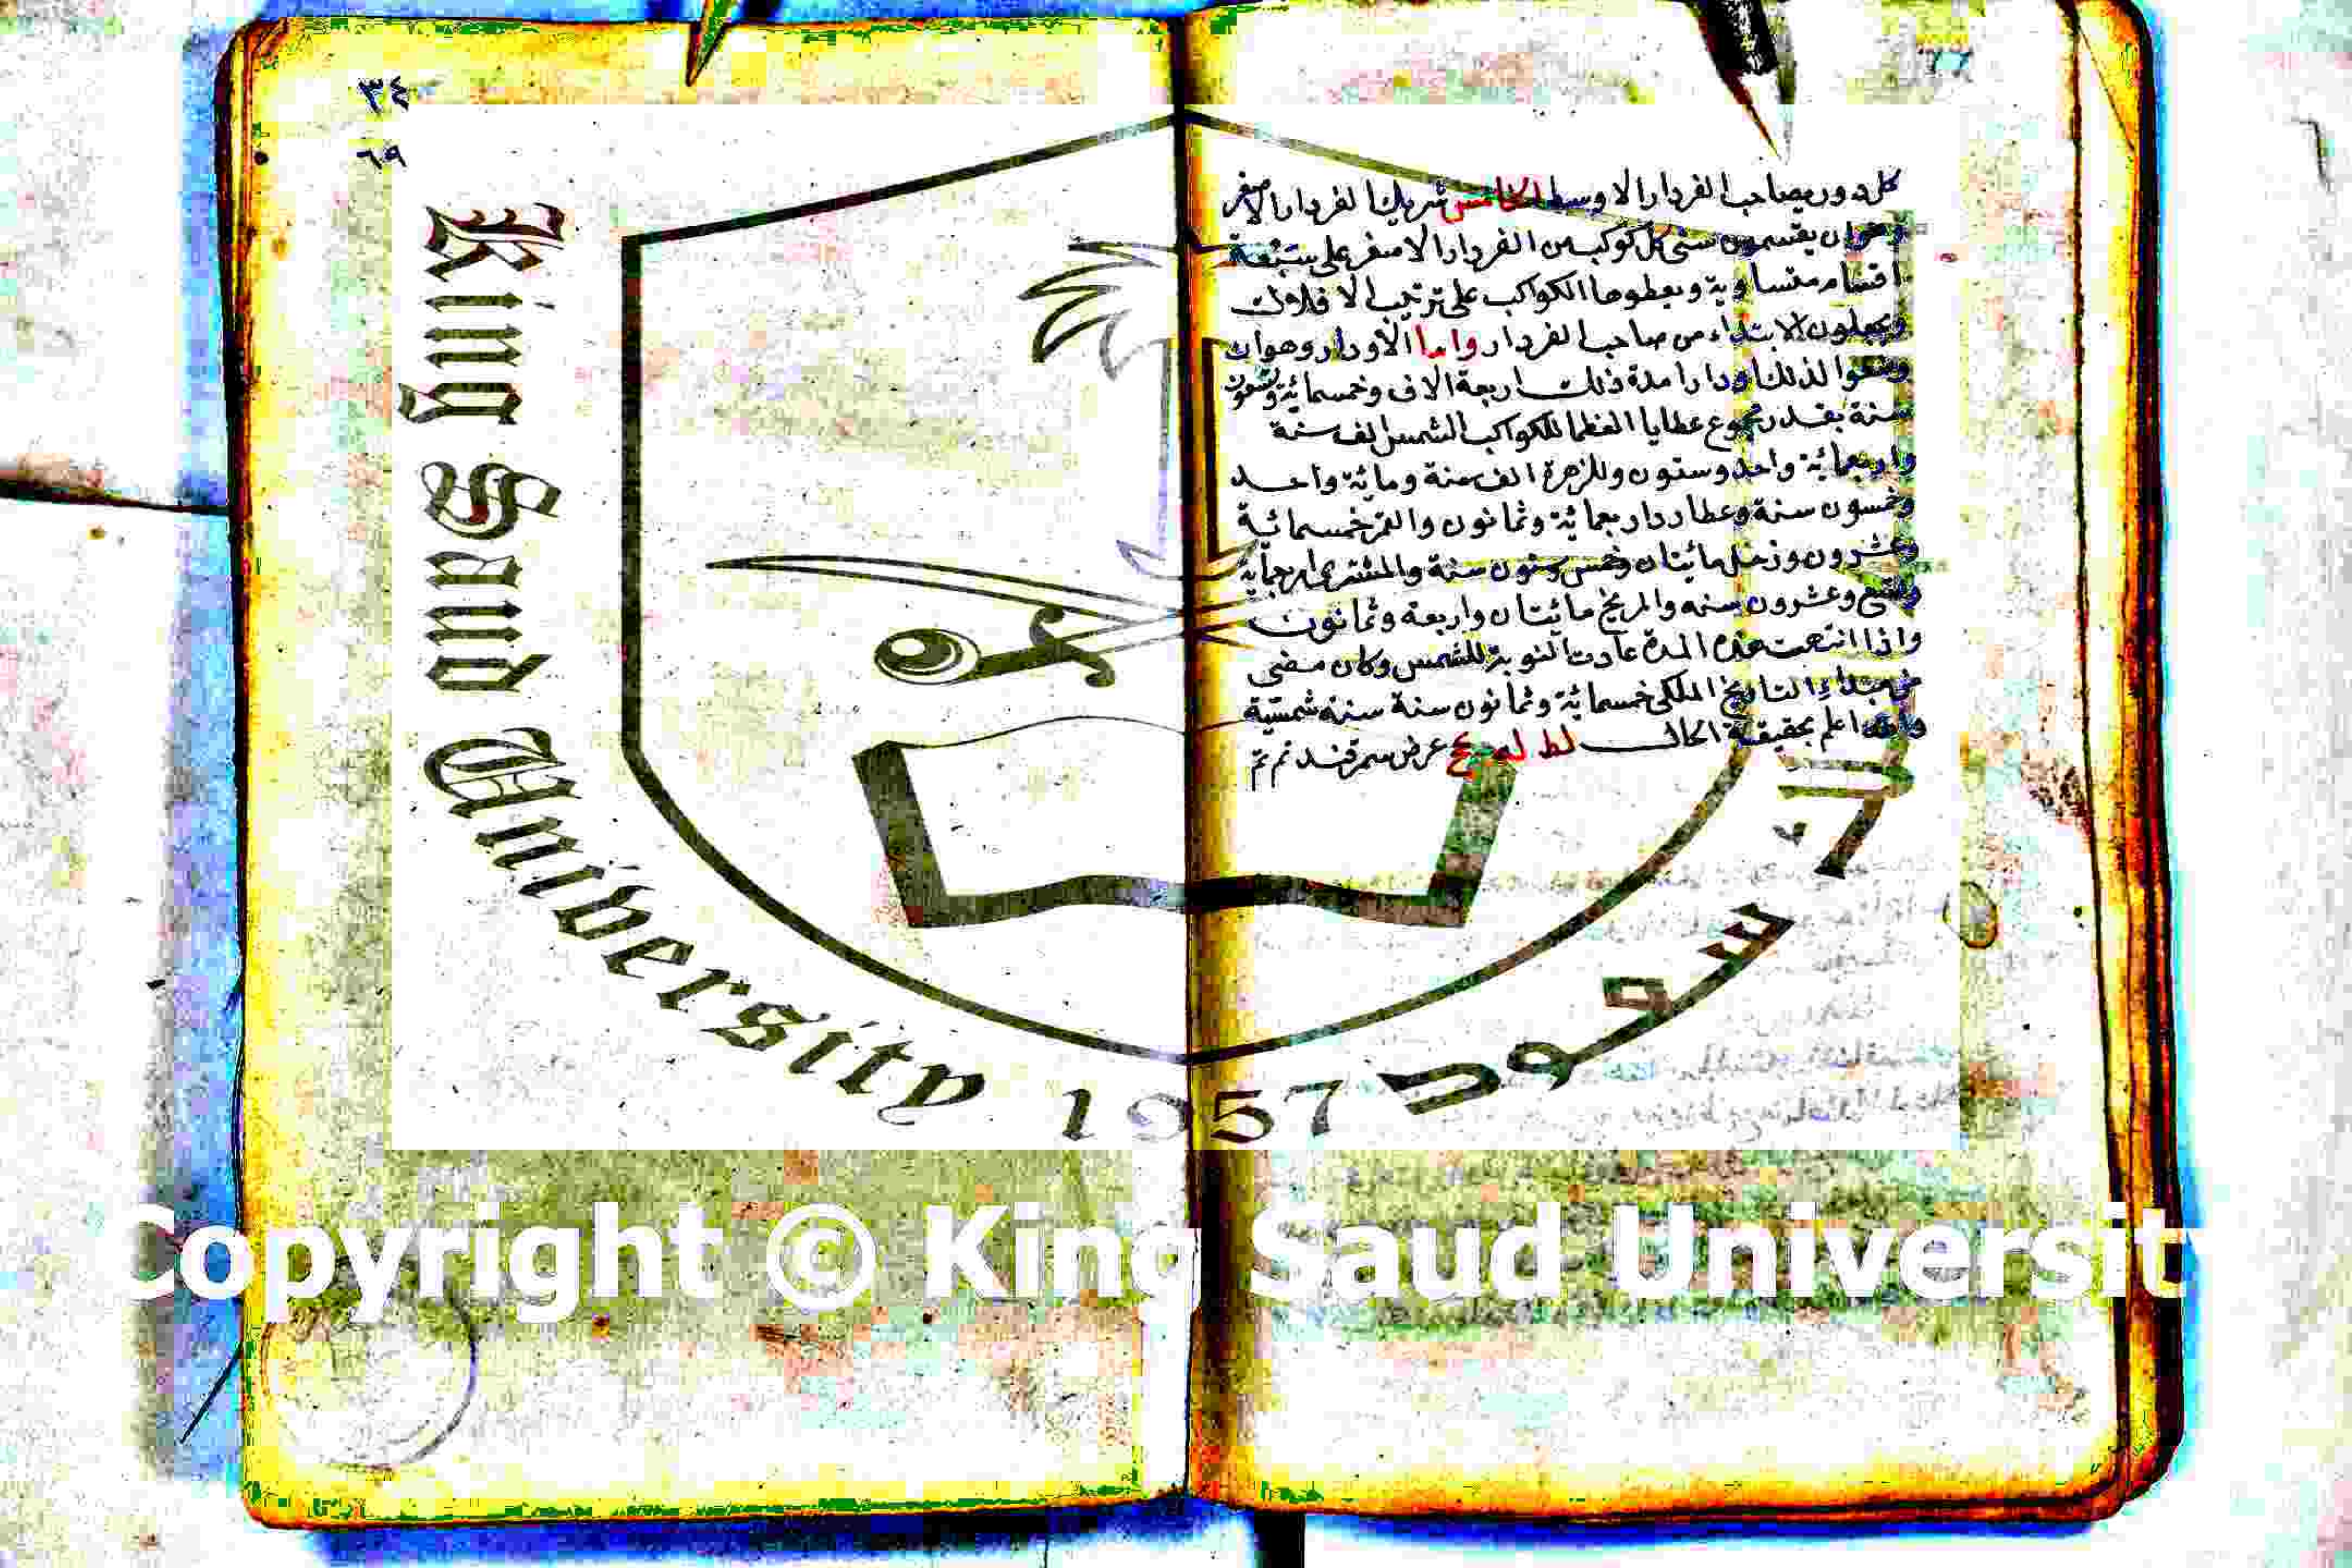 كل دور بصاحب الفردار الاوسط الخامس شريك الفردار الاصغر
وهوان يقسمون سنى كل كوكب من الفردار الاصغر على سبعة
اقسام متساوية ويعطوها الكواكب على ترتيب الافلاك
ويجعلون الابتداء من صاحب الفردار واما الأودار وهوان
وضعوا لذلك اودارا مدة ذلك اربعة الاف وخمسمائة وتسعون
سنة بقدر مجموع عطايا العظما للكواكب الشمس الف سنة
واربعمائة واحد وستون وللزهرة الف سنة ومائة واحد
وخمسون سنة وعطارد اربعمائة وثمانون والقمر خمسمائة
وعشرون وزحل مائيتان وخمس وستون سنة والمشترى اربعماية
وتسع وعشرون سنه والمريخ مائيتان واربعة وثمانون
واذا انتهت هذه المدة عادت النوبة للشمس وكان مضى
من مبداء التاريخ الملكى خمسمائة وثمانون سنة سنة شمسية
والله اعلم بحقيقة الحال لط عرض سمرقند تم تم
٣٤
٦٩
King Saud University
1957
سعود
Copyright © King Saud Universit